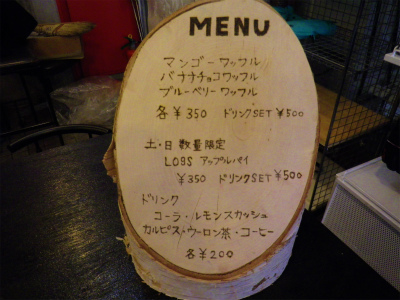 MENU
マンゴーワッフル
バナナチョコワッフル
ブルーベリーワッフル
各 ¥350 ドリンクSET ¥500
土・日 数量限定
LOBS アップルパイ
¥350 ドリンクSET ¥500
ドリンク
コーラ・レモンスカッシュ
カルピス・ウーロン茶・コーヒー
各 ¥200